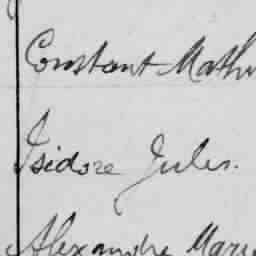 Constant Math
Isidore Jules.
Alexandre Marie